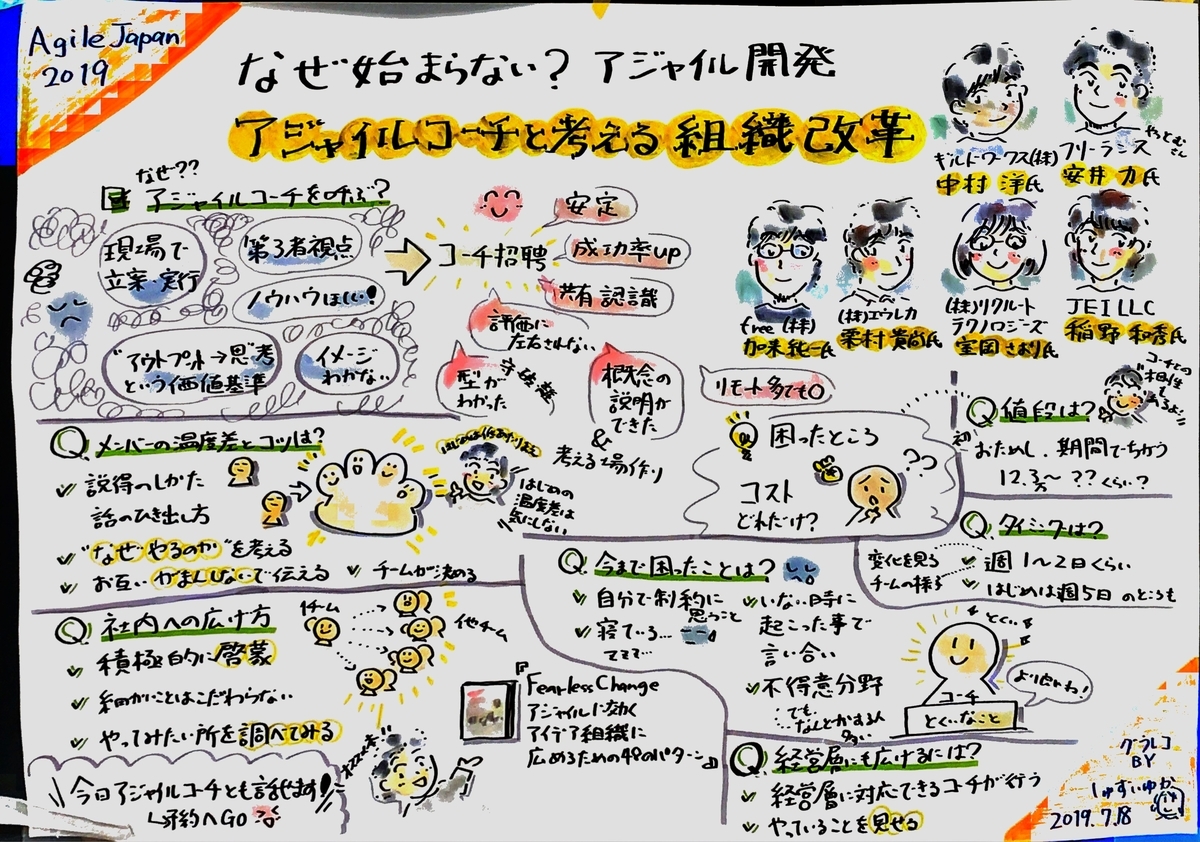 Agile Japan
2019
なぜ始まらない? アジャイル開発
アジャイルコーチと考える組織改革
ギルドワークス(株)
中村 洋氏
フリーランス
やっとむさん
安井 力氏
free (株)
加来純一氏
(株)エウレカ
栗村貴尚氏
(株)リクルート
テクノロジーズ
室岡さおり氏
JEI LLC
稲野 和秀氏
なぜ??
アジャイルコーチを呼ぶ?
現場で
立案・実行
第3者視点
ノウハウほしい!
"アウトプット→思考
という価値基準
イメージ
わかない
コーチ招聘
安定
成功率up
共有認識
評価に
左右されない
型が
わかった
守破離
概念の
説明が
できた
&
考える場作り
リモート多てもO
困ったところ
コスト
どれだけ?
Q 値段は?
コーチとの
相性
おためし、期間でちがう
Q タイミングは?
変化を見る
チームの様子
週1〜2日くらい
はじめは週5日のところも
Q メンバーの温度差とコツは?
説得のしかた
話のひき出し方
"なぜやるのか"を考える
お互いがまんしないで伝える
チームが決める
はじめの
温度差は
気にしない
Q 今まで困ったことは?
自分で制約に
思うこと
寝ている…
ててで…
いない時に
起こった事で
言い合い
不得意分野
でも、
なんとかする人
多い
コーチ
とくいなこと
Q 社内への広げ方
積極的に啓蒙
細かいことはこだわらない
やってみたい所を調べてみる
1チーム
他チーム
Fearless Change
アジャイルに効く
アイデア組織に
広めるための48のパターン
今日アジャイルコーチとも話せます!
↳予約へGO
Q 経営層にも広げるには?
経営層に対応できるコーチが行う
やっていることを見せる
グラレコ
BY
しゅずいゆか
2019.7.18